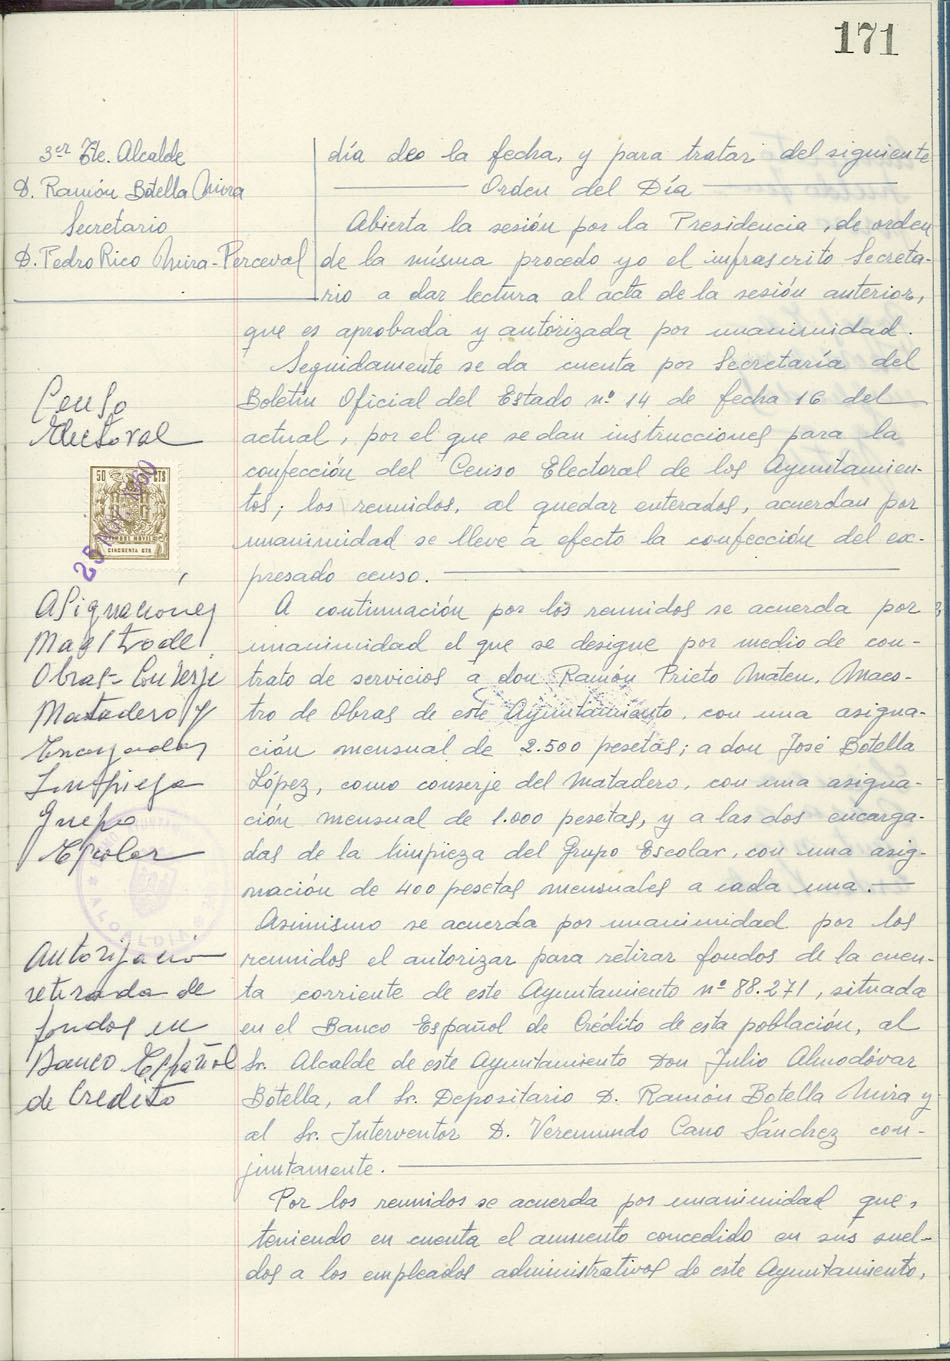 171
3er Tte. Alcalde
D. Ramón Botella Mira
Secretario
D. Pedro Rico Mira-Perceval
día de la fecha, y para tratar del siguiente
Orden del Día
Abierta la sesión por la Presidencia, de orden
de la misma procedo yo el infrascrito Secreta-
rio a dar lectura al acta de la sesión anterior,
que es aprobada y autorizada por unanimidad.
Censo
Electoral
Seguidamente se da cuenta por Secretaría del
Boletín Oficial del Estado nº 14 de fecha 16 del
actual, por el que se dan instrucciones para la
confección del Censo Electoral de los Ayuntamien-
tos; los reunidos, al quedar enterados, acuerdan por
unanimidad se lleve a efecto la confección del ex-
presado censo.
50 CTS
TIMBRE MOVIL
CINCUENTA CTS
25 1960
Asignaciones
Maestro de
Obras- Conserje
Matadero y
Encargadas
Limpieza
Grupo
Escolar
A continuación por los reunidos se acuerda por
unanimidad el que se designe por medio de con-
trato de servicios a don Ramón Prieto Mateu, Maes-
tro de Obras de este Ayuntamiento, con una asigna-
ción mensual de 2.500 pesetas; a don José Botella
López, como conserje del Matadero, con una asigna-
ción mensual de 1.000 pesetas, y a las dos encarga-
das de la limpieza del Grupo Escolar, con una asig-
nación de 400 pesetas mensuales a cada una.
ALCALDIA
Autorización
retirada de
fondos en
Banco Español
de Crédito
Asimismo se acuerda por unanimidad por los
reunidos el autorizar para retirar fondos de la cuen-
ta corriente de este Ayuntamiento nº 88.271, situada
en el Banco Español de Crédito de esta población, al
Sr. Alcalde de este Ayuntamiento Don Julio Almodóvar
Botella, al Sr. Depositario D. Ramón Botella Mira y
al Sr. Interventor D. Veremundo Cano Sánchez con-
juntamente.
Por los reunidos se acuerda por unanimidad que,
teniendo en cuenta el aumento concedido en sus suel-
dos a los empleados administrativos de este Ayuntamiento,